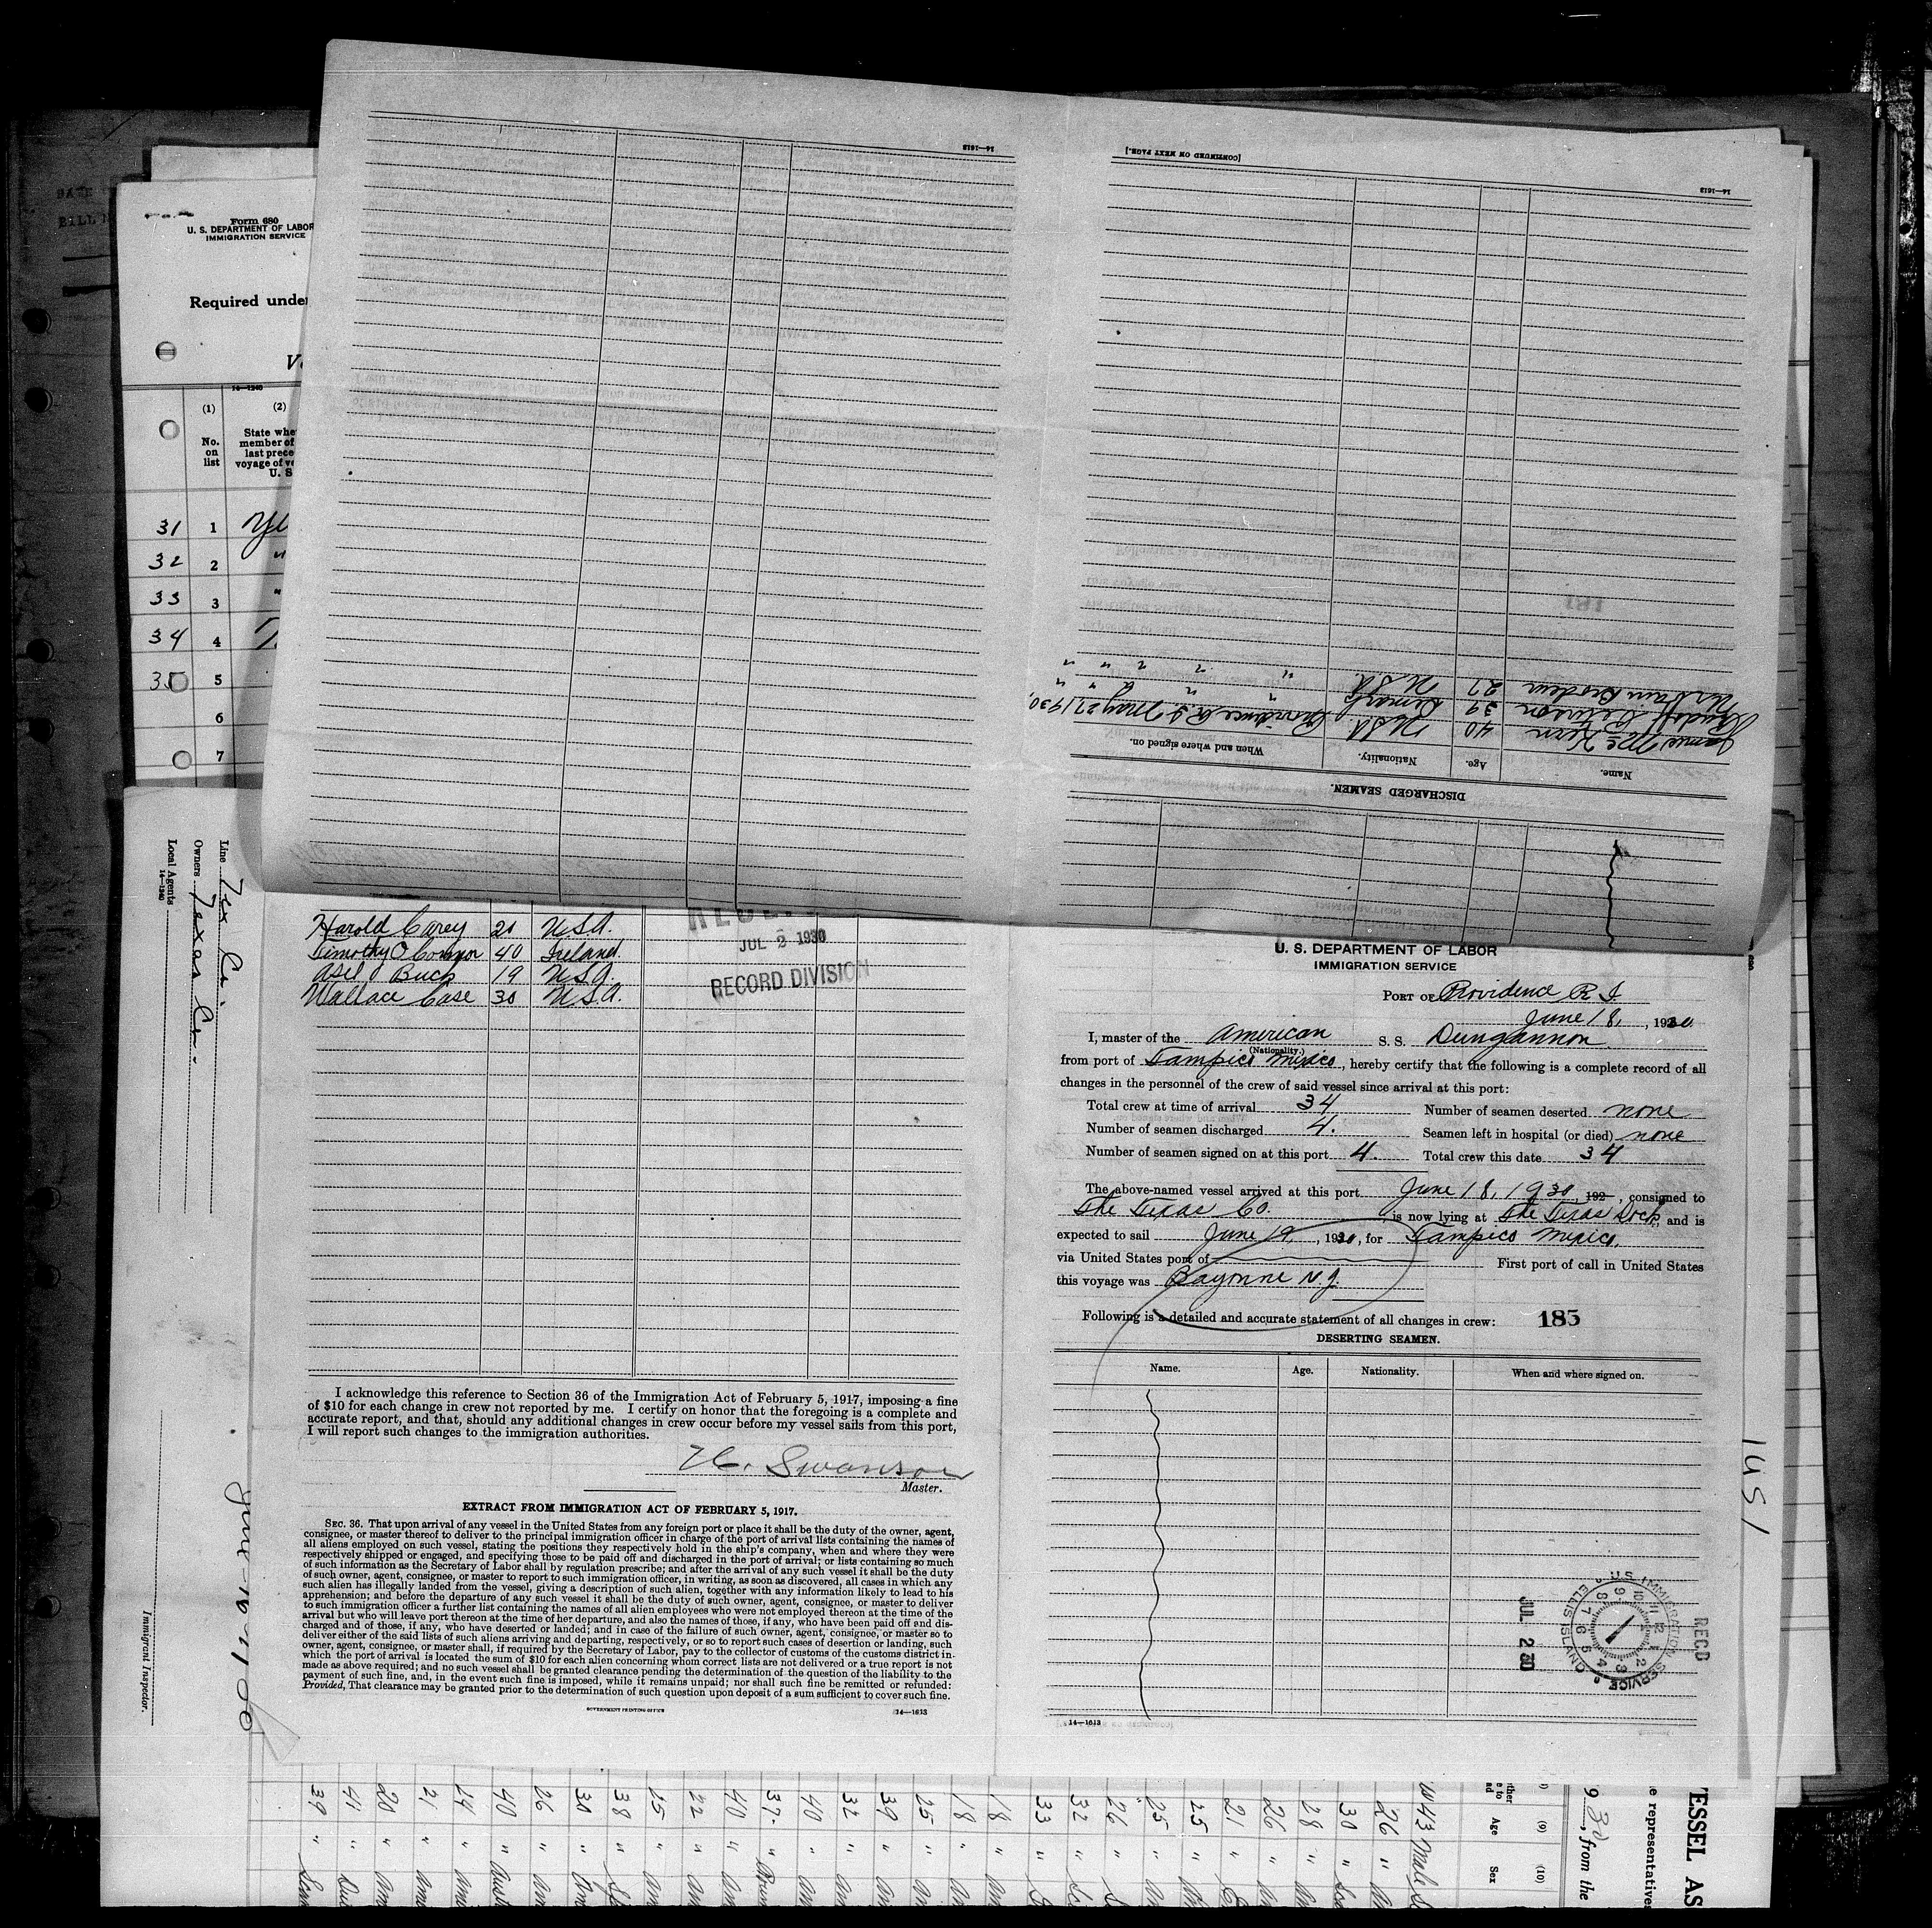 Form 680
U. S. DEPARTMENT OF LABOR
IMMIGRATION SERVICE
Required under
14—1240
(1) (2)
No. on list
State whe
member of
last prece
voyage of ve
U. S
31 1
32 2 "
33 3 "
34 4
35 5
6
7
14—1613
[CONTINUED ON NEXT PAGE.]
14—1613
DISCHARGED SEAMEN.
Name. Age. Nationality. When and where signed on.
James McKern 40 USA Providence R.I. May 27, 1930,
Rudolf Peterson 39 Denmark " " " "
Urbain Brodeur 27 USA " " " " "
Line Tex Co.
Owners Texas Co.
Local Agents
14—1240
Immigrant Inspector.
Harold Carey 21 U.S.A.
Timothy O'Connor 40 Ireland.
Asel J Buck 19 U.S.A.
Wallace Case 30 U.S.A.
JUL 2 1930
RECORD DIVISION
I acknowledge this reference to Section 36 of the Immigration Act of February 5, 1917, imposing a fine
of $10 for each change in crew not reported by me. I certify on honor that the foregoing is a complete and
accurate report, and that, should any additional changes in crew occur before my vessel sails from this port,
I will report such changes to the immigration authorities.
H. Swanson
Master.
EXTRACT FROM IMMIGRATION ACT OF FEBRUARY 5, 1917.
SEC. 36. That upon arrival of any vessel in the United States from any foreign port or place it shall be the duty of the owner, agent,
consignee, or master thereof to deliver to the principal immigration officer in charge of the port of arrival lists containing the names of
all aliens employed on such vessel, stating the positions they respectively hold in the ship's company, when and where they were
respectively shipped or engaged, and specifying those to be paid off and discharged in the port of arrival; or lists containing so much
of such information as the Secretary of Labor shall by regulation prescribe; and after the arrival of any such vessel it shall be the duty
of such owner, agent, consignee, or master to report to such immigration officer, in writing, as soon as discovered, all cases in which any
such alien has illegally landed from the vessel, giving a description of such alien, together with any information likely to lead to his
apprehension; and before the departure of any such vessel it shall be the duty of such owner, agent, consignee, or master to deliver
to such immigration officer a further list containing the names of all alien employees who were not employed thereon at the time of the
arrival but who will leave port thereon at the time of her departure, and also the names of those, if any, who have been paid off and dis-
charged and of those, if any, who have deserted or landed; and in case of the failure of such owner, agent, consignee, or master so to
deliver either of the said lists of such aliens arriving and departing, respectively, or so to report such cases of desertion or landing, such
owner, agent, consignee, or master shall, if required by the Secretary of Labor, pay to the collector of customs of the customs district in
which the port of arrival is located the sum of $10 for each alien concerning whom correct lists are not delivered or a true report is not
made as above required; and no such vessel shall be granted clearance pending the determination of the question of the liability to the
payment of such fine, and, in the event such fine is imposed, while it remains unpaid; nor shall such fine be remitted or refunded:
Provided, That clearance may be granted prior to the determination of such question upon deposit of a sum sufficient to cover such fine.
GOVERNMENT PRINTING OFFICE 14—1613
U. S. DEPARTMENT OF LABOR
IMMIGRATION SERVICE
PORT OF Providence R I
June 18, 1930.
I, master of the American S. S. Dungannon
(Nationality.)
from port of Tampico Mexico, hereby certify that the following is a complete record of all
changes in the personnel of the crew of said vessel since arrival at this port:
Total crew at time of arrival 34 Number of seamen deserted none
Number of seamen discharged 4. Seamen left in hospital (or died) none
Number of seamen signed on at this port 4. Total crew this date 34
The above-named vessel arrived at this port June 18, 1930, 192 , consigned to
The Texas Co. is now lying at The Texas Dock, and is
expected to sail June 19, 1930, for Tampico Mexico.
via United States port of First port of call in United States
this voyage was Bayonne N.J.
Following is a detailed and accurate statement of all changes in crew: 185
DESERTING SEAMEN.
Name. Age. Nationality. When and where signed on.
14—1613
REC'D
U.S. IMMIGRATION SERVICE
ELLIS ISLAND
JUL 2 30
1451
ESSEL AS
e representative
930, from the
(9) (10)
Age Sex
43 Male
26 "
30 "
28 "
26 "
21 "
25 "
25 "
26 "
32 "
33 "
18 "
18 "
25 "
39 "
32 "
40 "
37. "
40 "
22 "
25 "
38 "
30 "
26 "
40 "
24 "
21 "
20 "
41 "
39 "